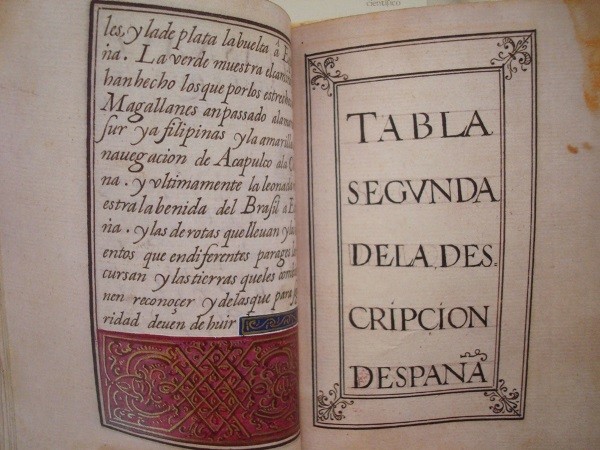 científico
les, y la de plata la buelta â E
ña. La verde muestra el cami
han hecho los que por los estrech
Magallanes an passado ala mar
sur y a filipinas y la amarill
nauegacion de Acapulco ala
na. y vltimamente la leonad
estra la benida del Brasil â E
ña. y las de rotas que lleuan y
entos que en diferentes parages
cursan y las tierras que les con
nen reconoçer y de las que para
ridad deuen de huir
TABLA
SEGVNDA
DE LA DES
CRIPÇION
DESPAÑA